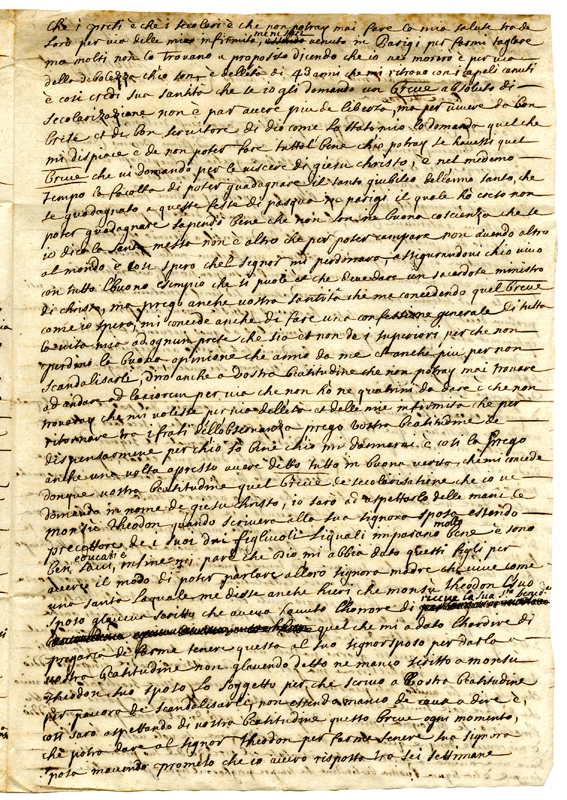 che i preti e che i secolari e che non potray mai fare la mia salute tra da
loro per via delle mie infirmita, me ne son venuto in Parigi per farmi tagliare
ma molti non lo trovano a proposito dicendo che io ne morirò e per via
della debolezza ch'io son, e dell'eta di 4 danno che mi ritrovo con i capeli canuti
e cosi credi sua santita che se io gli domando un breve absoluto di
secolarizatione non è par avere piu de liberta, ma per vivere da bon
prete et da bon servitore di dio come lo stato mio lo domanda quel che
mi dispiace e de non poter fare tuttol bene ch'io potray se havessi quel
breve che vi domando per le viscere di giesu christo, e nel medemo
tempo la facolta di poter guadagnare il santo giubileo dell'anno santo, che
se guadagnato a queste feste di pasqua in parigi il quale ho creto non
poter guadagnare sapendo bene che non son in buona coscienza che se
io dico la santa messa non è altro che per poter campare non avendo altro
al mondo e cosi spero chel signor mi perdonara, assigurandovi ch'io vivo
con tutto l'buono esimpio che si puole et che devedare un sacerdote ministro
di christo, ma prego anche vostra santità che ma concedendo quel breve
come io spero, mi concede anche di fare una confessione generale di tutta
la vita mia ad ognun prete che sia et non de i superiori, perche non
perdino la buona opinione che anno da me et anche piu per non
scandalisarli, diro anche a vostra beatitudine che non potray mai trovare
ad andare ad lasciorin per via che non ho ne quatrini da dare e che non
trovaray che mi volisse per via dell'eta et delle mie infirmita che per
ritornare tra i frati dell'osservanza prego vostra beatitudine de
dispensarmene perchio so bene chio mi dannarai e cosi la prego
anche una volta apresso avere ditto tutto in buona verita, che mi concede
donque vostra beatitudine quel breve de secolarisatione che io ve
domando in nome de giesu christo, io saro ad aspettarlo delle mani de
monsu Theodon quando scrivera alla sua signora sposa essendo
precettore de i suoi dui figlivoli liquali imparano molto bene e sono
ben educati e savi, infine mi pare che Dio mi abbia dato questi figli per
avere il modo di poter parlare alloro signora madre che vive come
una santa laquale me disse anche hieri che monsu Theodon suo
sposo glaveva scritto che aveva havuto l'honore di riceve la sua Sta. bened.e
quel che mi a dato l'hardire di
pregarla di farme tenere questa al suo signor sposo per darla
vostra beatitudine non glavendo detto ne manco scritto a monsu
Theodon suo sposo lo soggetto per che scrivo a vostra beatitudine
per pavora de scandalisarli, non essendo manco de causa a dire e,
cosi saro aspettando di vostra beatitudine questo breve ogni momento,
che potra dare al signor Theodon per farme tenere sua signora
sposa mavendo prometo che io avero risposta tra sei settimane